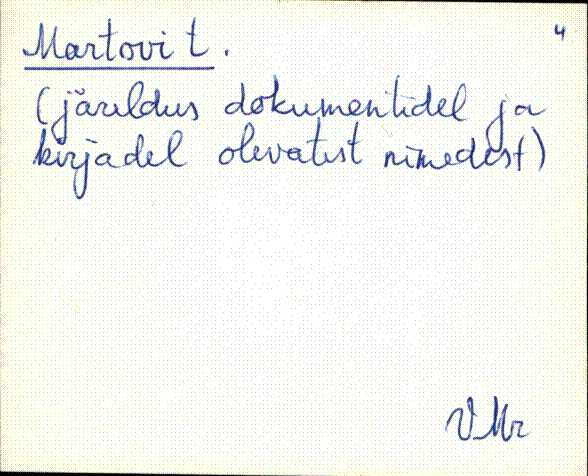 4
Martovi t.
(järeldus dokumentidel ja
kirjadel olevatest nimedest)
VMr